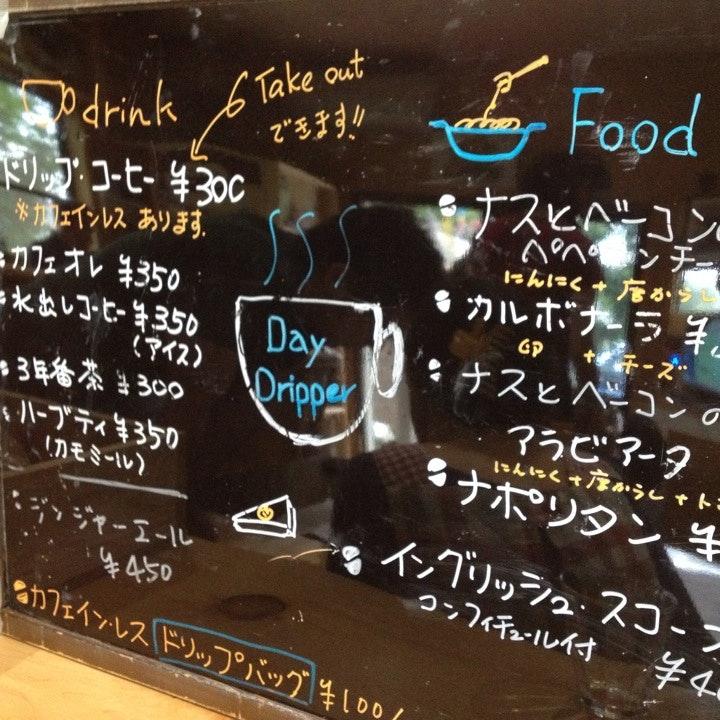 drink
Take out
できます!!
ドリップ・コーヒー ¥300
※カフェインレス あります.
カフェオレ ¥350
水出しコーヒー ¥350
(アイス)
3年番茶 ¥300
ハーブティ ¥350
(カモミール)
ジンジャーエール
¥450
カフェイン・レス ドリップバッグ ¥100/
Day
Dripper
Food
ナスとベーコン
ペペ
ンチー
にんにく+唐がらし
カルボナーラ ¥
卵 + チーズ
ナスとベーコンの
アラビアータ
にんにく+唐がらし+ト
ナポリタン ¥
イングリッシュ・スコーン
コンフィチュール付
¥4